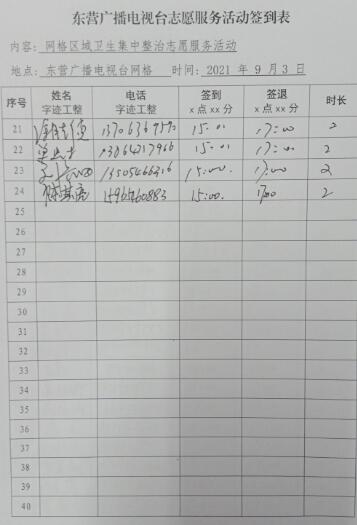 东营广播电视台志愿服务活动签到表
内容: 网格区域卫生集中整治志愿服务活动
地点: 东营广播电视台网格 时间: 2021 年 9 月 3 日
序号 姓名 字迹工整 电话 字迹工整 签到 x 点 xx 分 签退 x 点 xx 分 时长
21 15:01 17:00 2
22 15:01 17:00 2
23 13505466216 15:00. 17:00 2
24 15965460883 15:00. 17:00 2
25
26
27
28
29
30
31
32
33
34
35
36
37
38
39
40